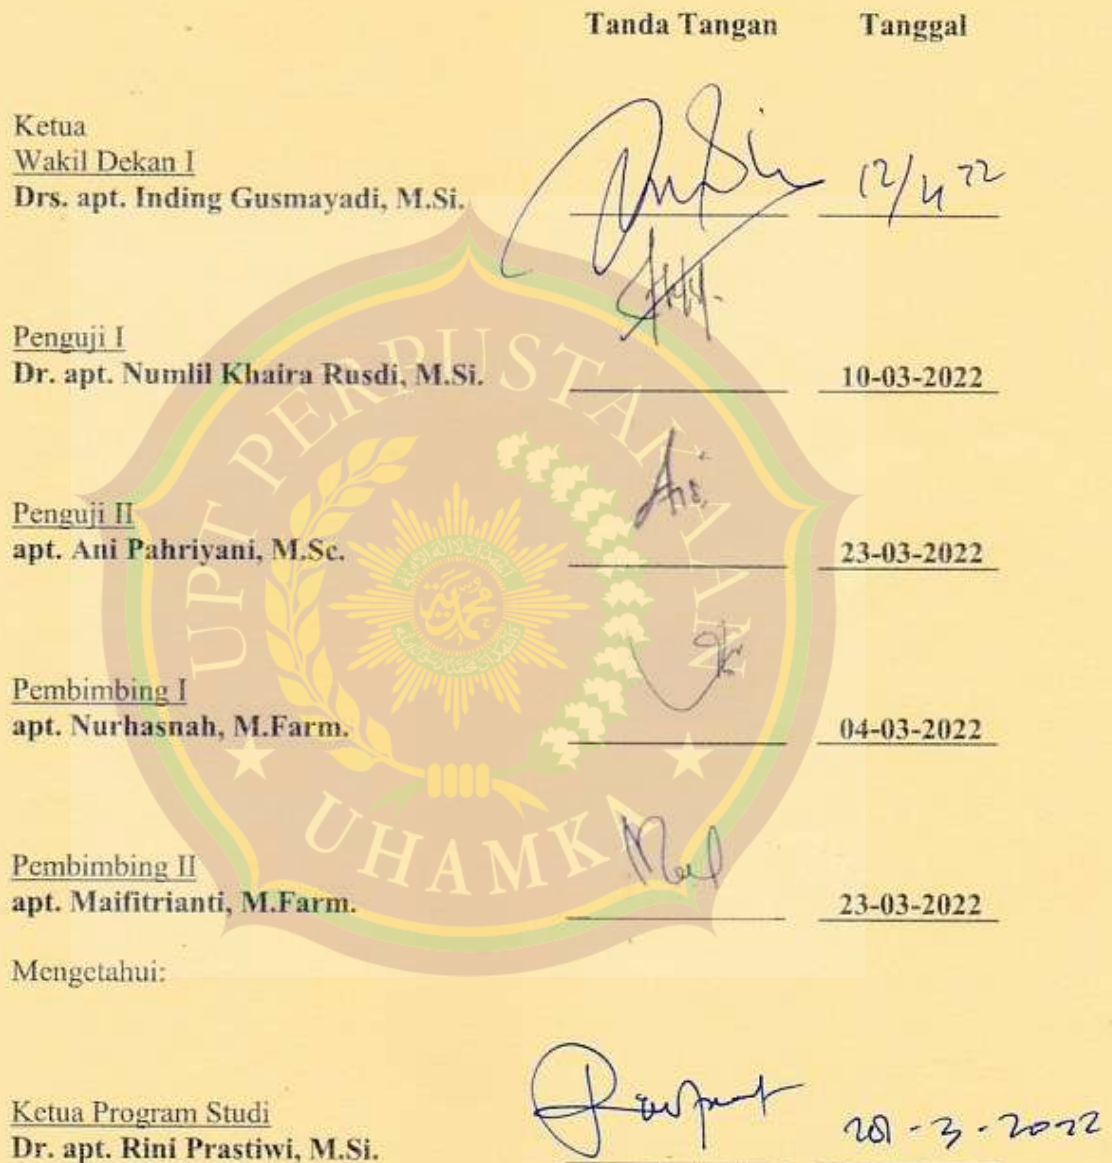 Tanda Tangan Tanggal
Ketua
Wakil Dekan I
Drs. apt. Inding Gusmayadi, M.Si. 12/4 22
Penguji I
Dr. apt. Numlil Khaira Rusdi, M.Si. 10-03-2022
Penguji II
apt. Ani Pahriyani, M.Sc. 23-03-2022
Pembimbing I
apt. Nurhasnah, M.Farm. 04-03-2022
Pembimbing II
apt. Maifitrianti, M.Farm. 23-03-2022
Mengetahui:
Ketua Program Studi
Dr. apt. Rini Prastiwi, M.Si. -3-2022
UPT PERPUSTAKAAN
UHAMKA